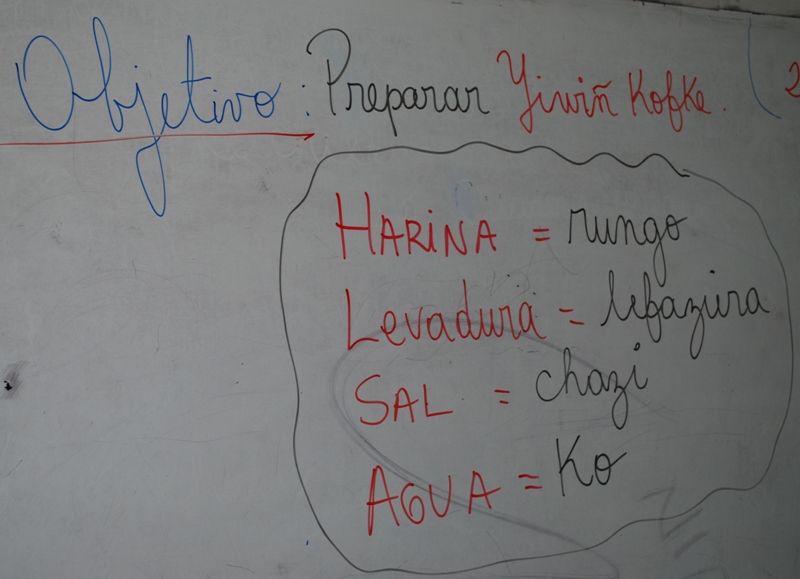 Objetivo: Preparar Yiwiñ Kofke. (2
HARINA = rungo
Levadura = lefazura
SAL = chazi
AGUA = Ko